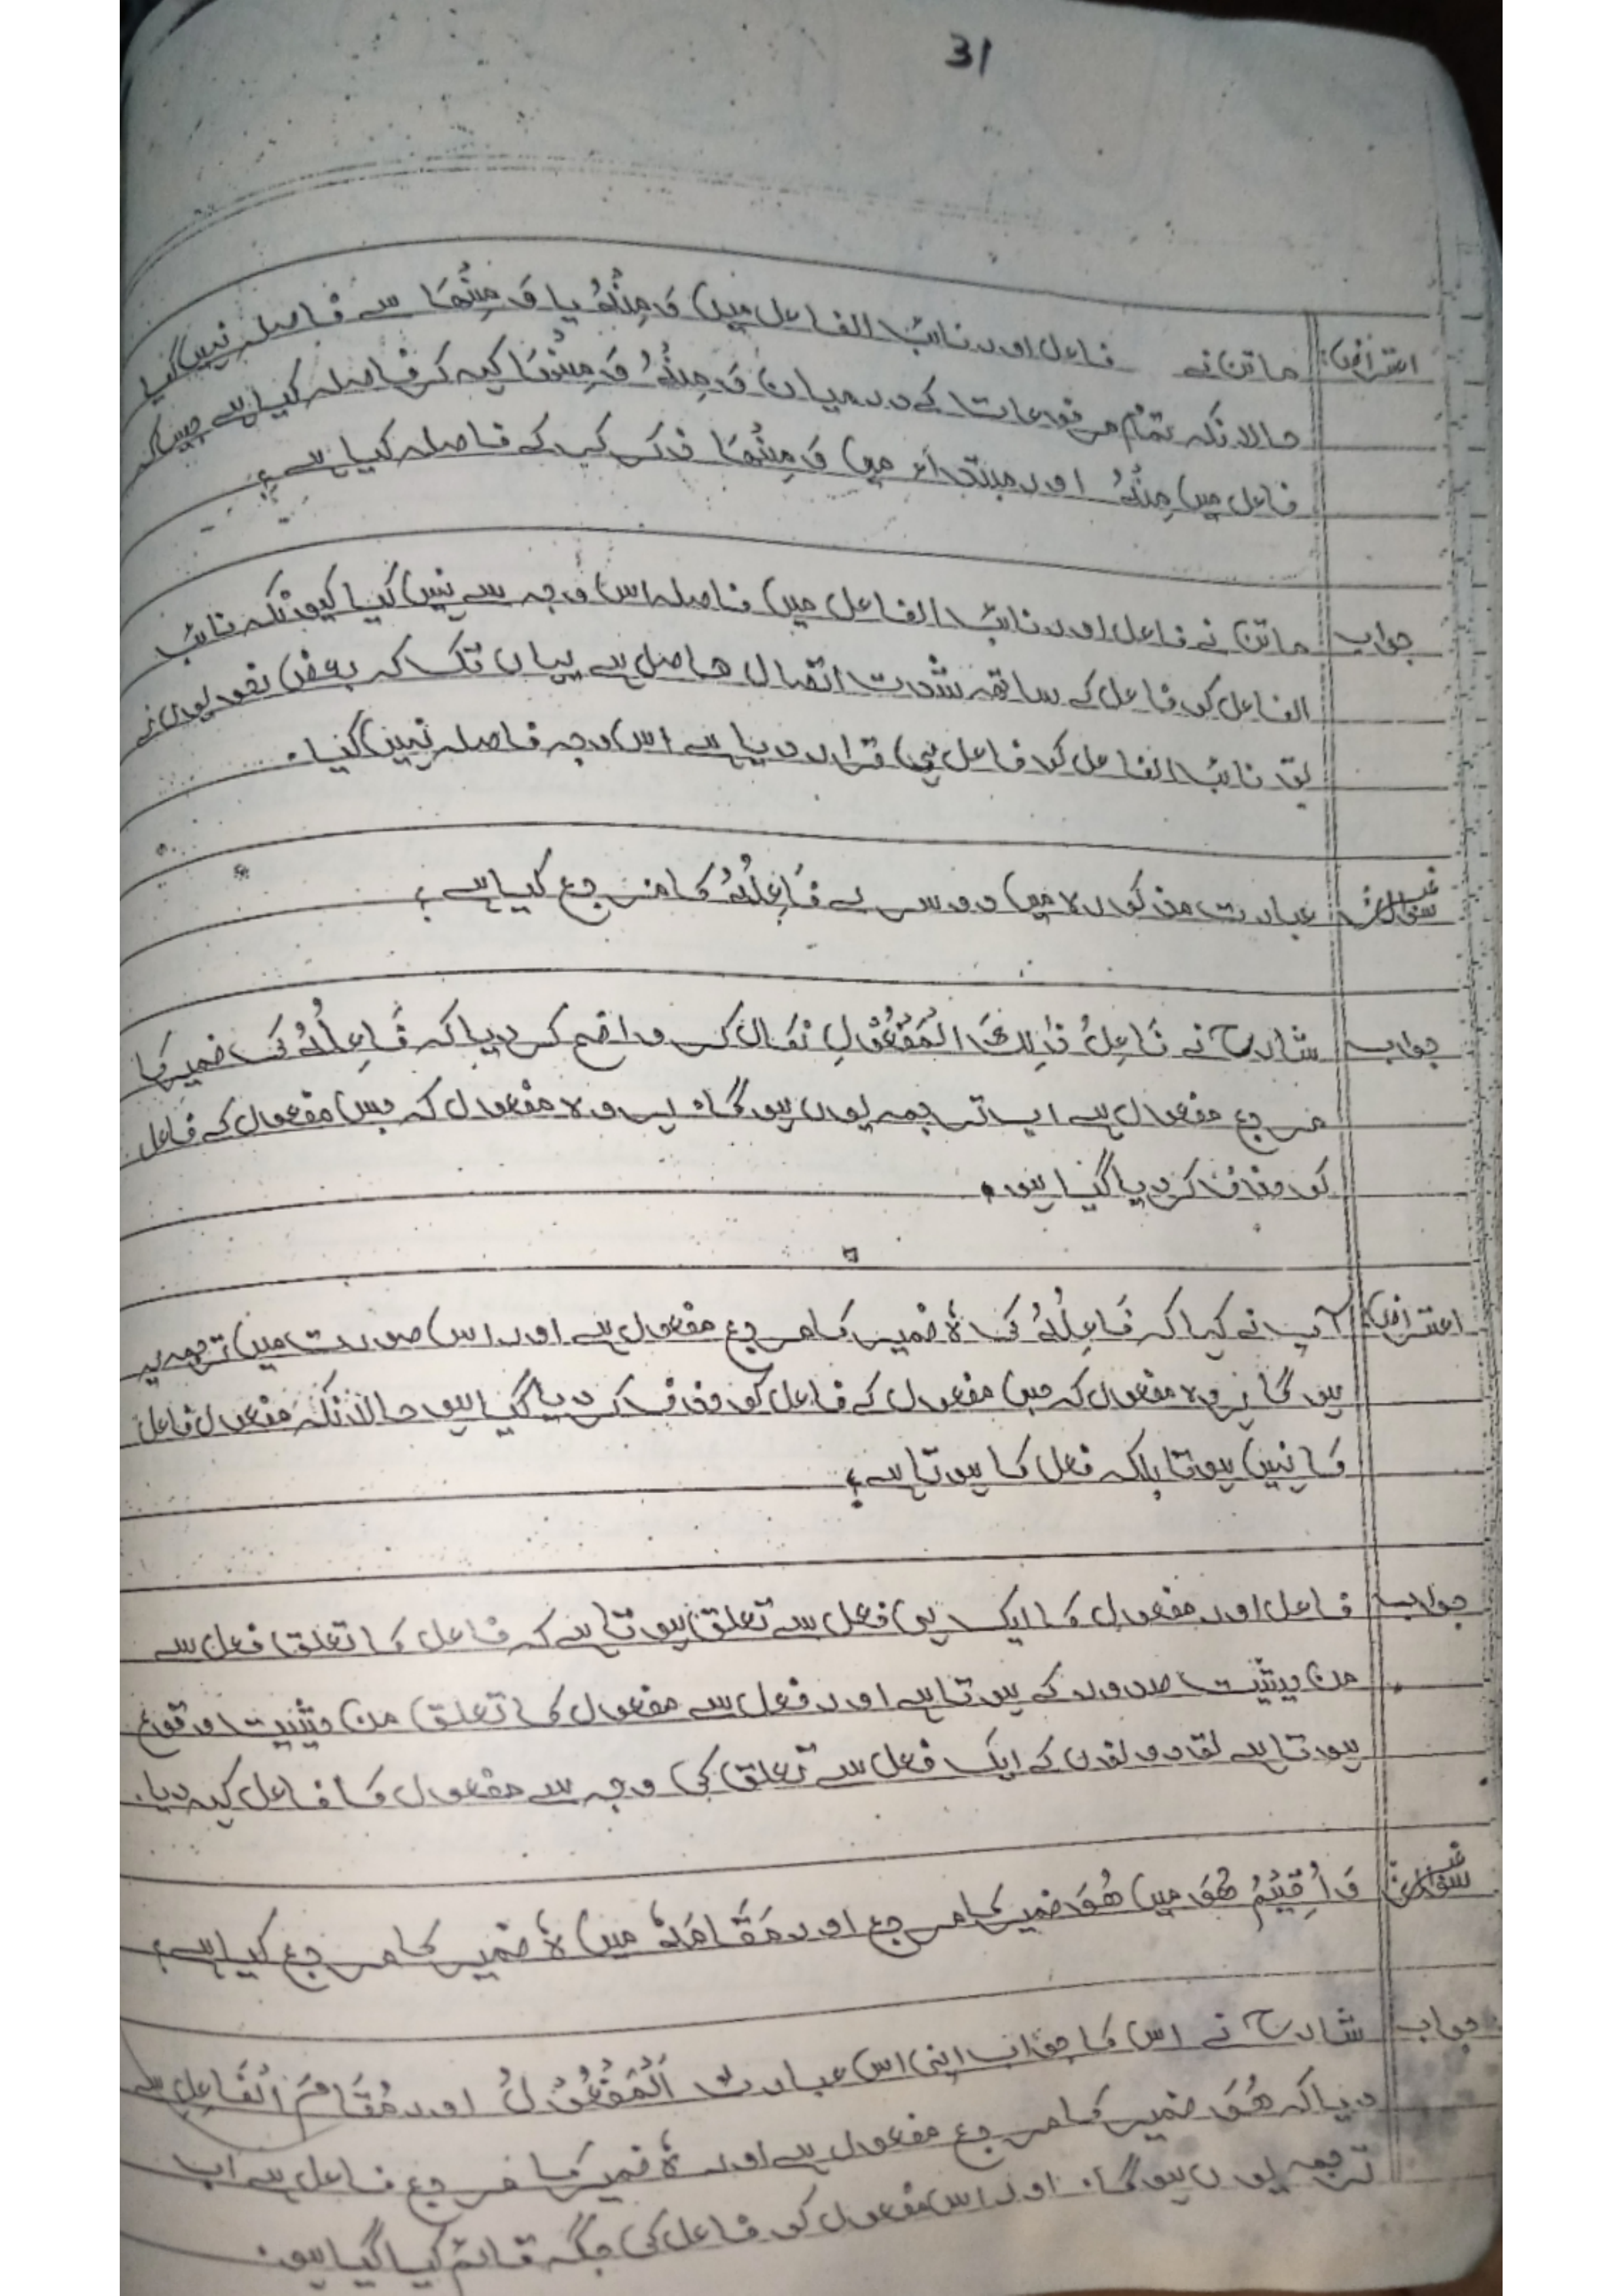 31
اعتراض: ماتن نے فاعل اور نائب الفاعل میں وَمِنْهُ یا وَمِنْهَا سے فاصلہ نہیں کیا
حالانکہ تمام مرفوعات کے درمیان وَمِنْهُ وَمِنْهَا کہہ کر فاصلہ کیا ہے جیسا کہ
فاعل میں مِنْهُ اور مبتداء میں وَمِنْهَا ذکر کر کے فاصلہ کیا ہے؟
جواب ماتن نے فاعل اور نائب الفاعل میں فاصلہ اس وجہ سے نہیں کیا کیونکہ نائب
الفاعل کو فاعل کے ساتھ شدت اتصال حاصل ہے یہاں تک کہ بعض نحویوں نے
تو نائب الفاعل کو فاعل ہی قرار دیا ہے اس وجہ فاصلہ نہیں کیا۔
سوال عبارت مذکورہ میں دوسرے فَاعِلُهُ کا مرجع کیا ہے؟
جواب شارح نے فَاعِلُ ذٰلِكَ الْمَفْعُوْلِ نکال کر واضح کر دیا کہ فَاعِلُهُ کی ضمیر کا
مرجع مفعول ہے اب ترجمہ یوں ہوگا۔ ہر وہ مفعول کہ جس مفعول کے فاعل
کو حذف کر دیا گیا ہو۔
اعتراض: آپ نے کہا کہ فَاعِلُهُ کی ہٗ ضمیر کا مرجع مفعول ہے اور اس صورت میں ترجمہ یہ
ہوگا ہر وہ مفعول کہ جس مفعول کے فاعل کو حذف کر دیا گیا ہو حالانکہ مفعول فاعل
کا نہیں ہوتا بلکہ فعل کا ہوتا ہے؟
جواب فاعل اور مفعول کا ایک ہی فعل سے تعلق ہوتا ہے کہ فاعل کا تعلق فعل سے
من حیثیت صدور کے ہوتا ہے اور فعل سے مفعول کا تعلق من حیثیت وقوع
ہوتا ہے تو دونوں کے ایک فعل سے تعلق کی وجہ سے مفعول کا فاعل کہہ دیا۔
سوال وَأُقِيْمَ هُوَ میں هُوَ ضمیر کا مرجع اور مَقَامَهٗ میں ہٗ ضمیر کا مرجع کیا ہے؟
جواب شارح نے اس کا جواب اپنی اس عبارت اَلْمَفْعُوْلُ اور مُقَامَ الْفَاعِلِ سے
دیا کہ هُوَ ضمیر کا مرجع مفعول ہے اور ہٗ ضمیر کا مرجع فاعل ہے اب
ترجمہ یوں ہوگا۔ اور اس مفعول کو فاعل کی جگہ قائم کیا گیا ہو۔